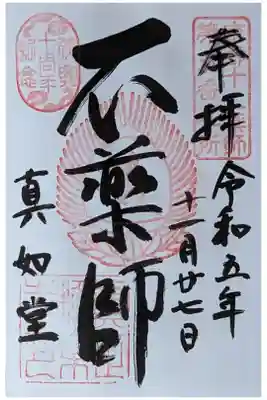 奉拝
令和五年
十一月廿七日
石薬師
真如堂